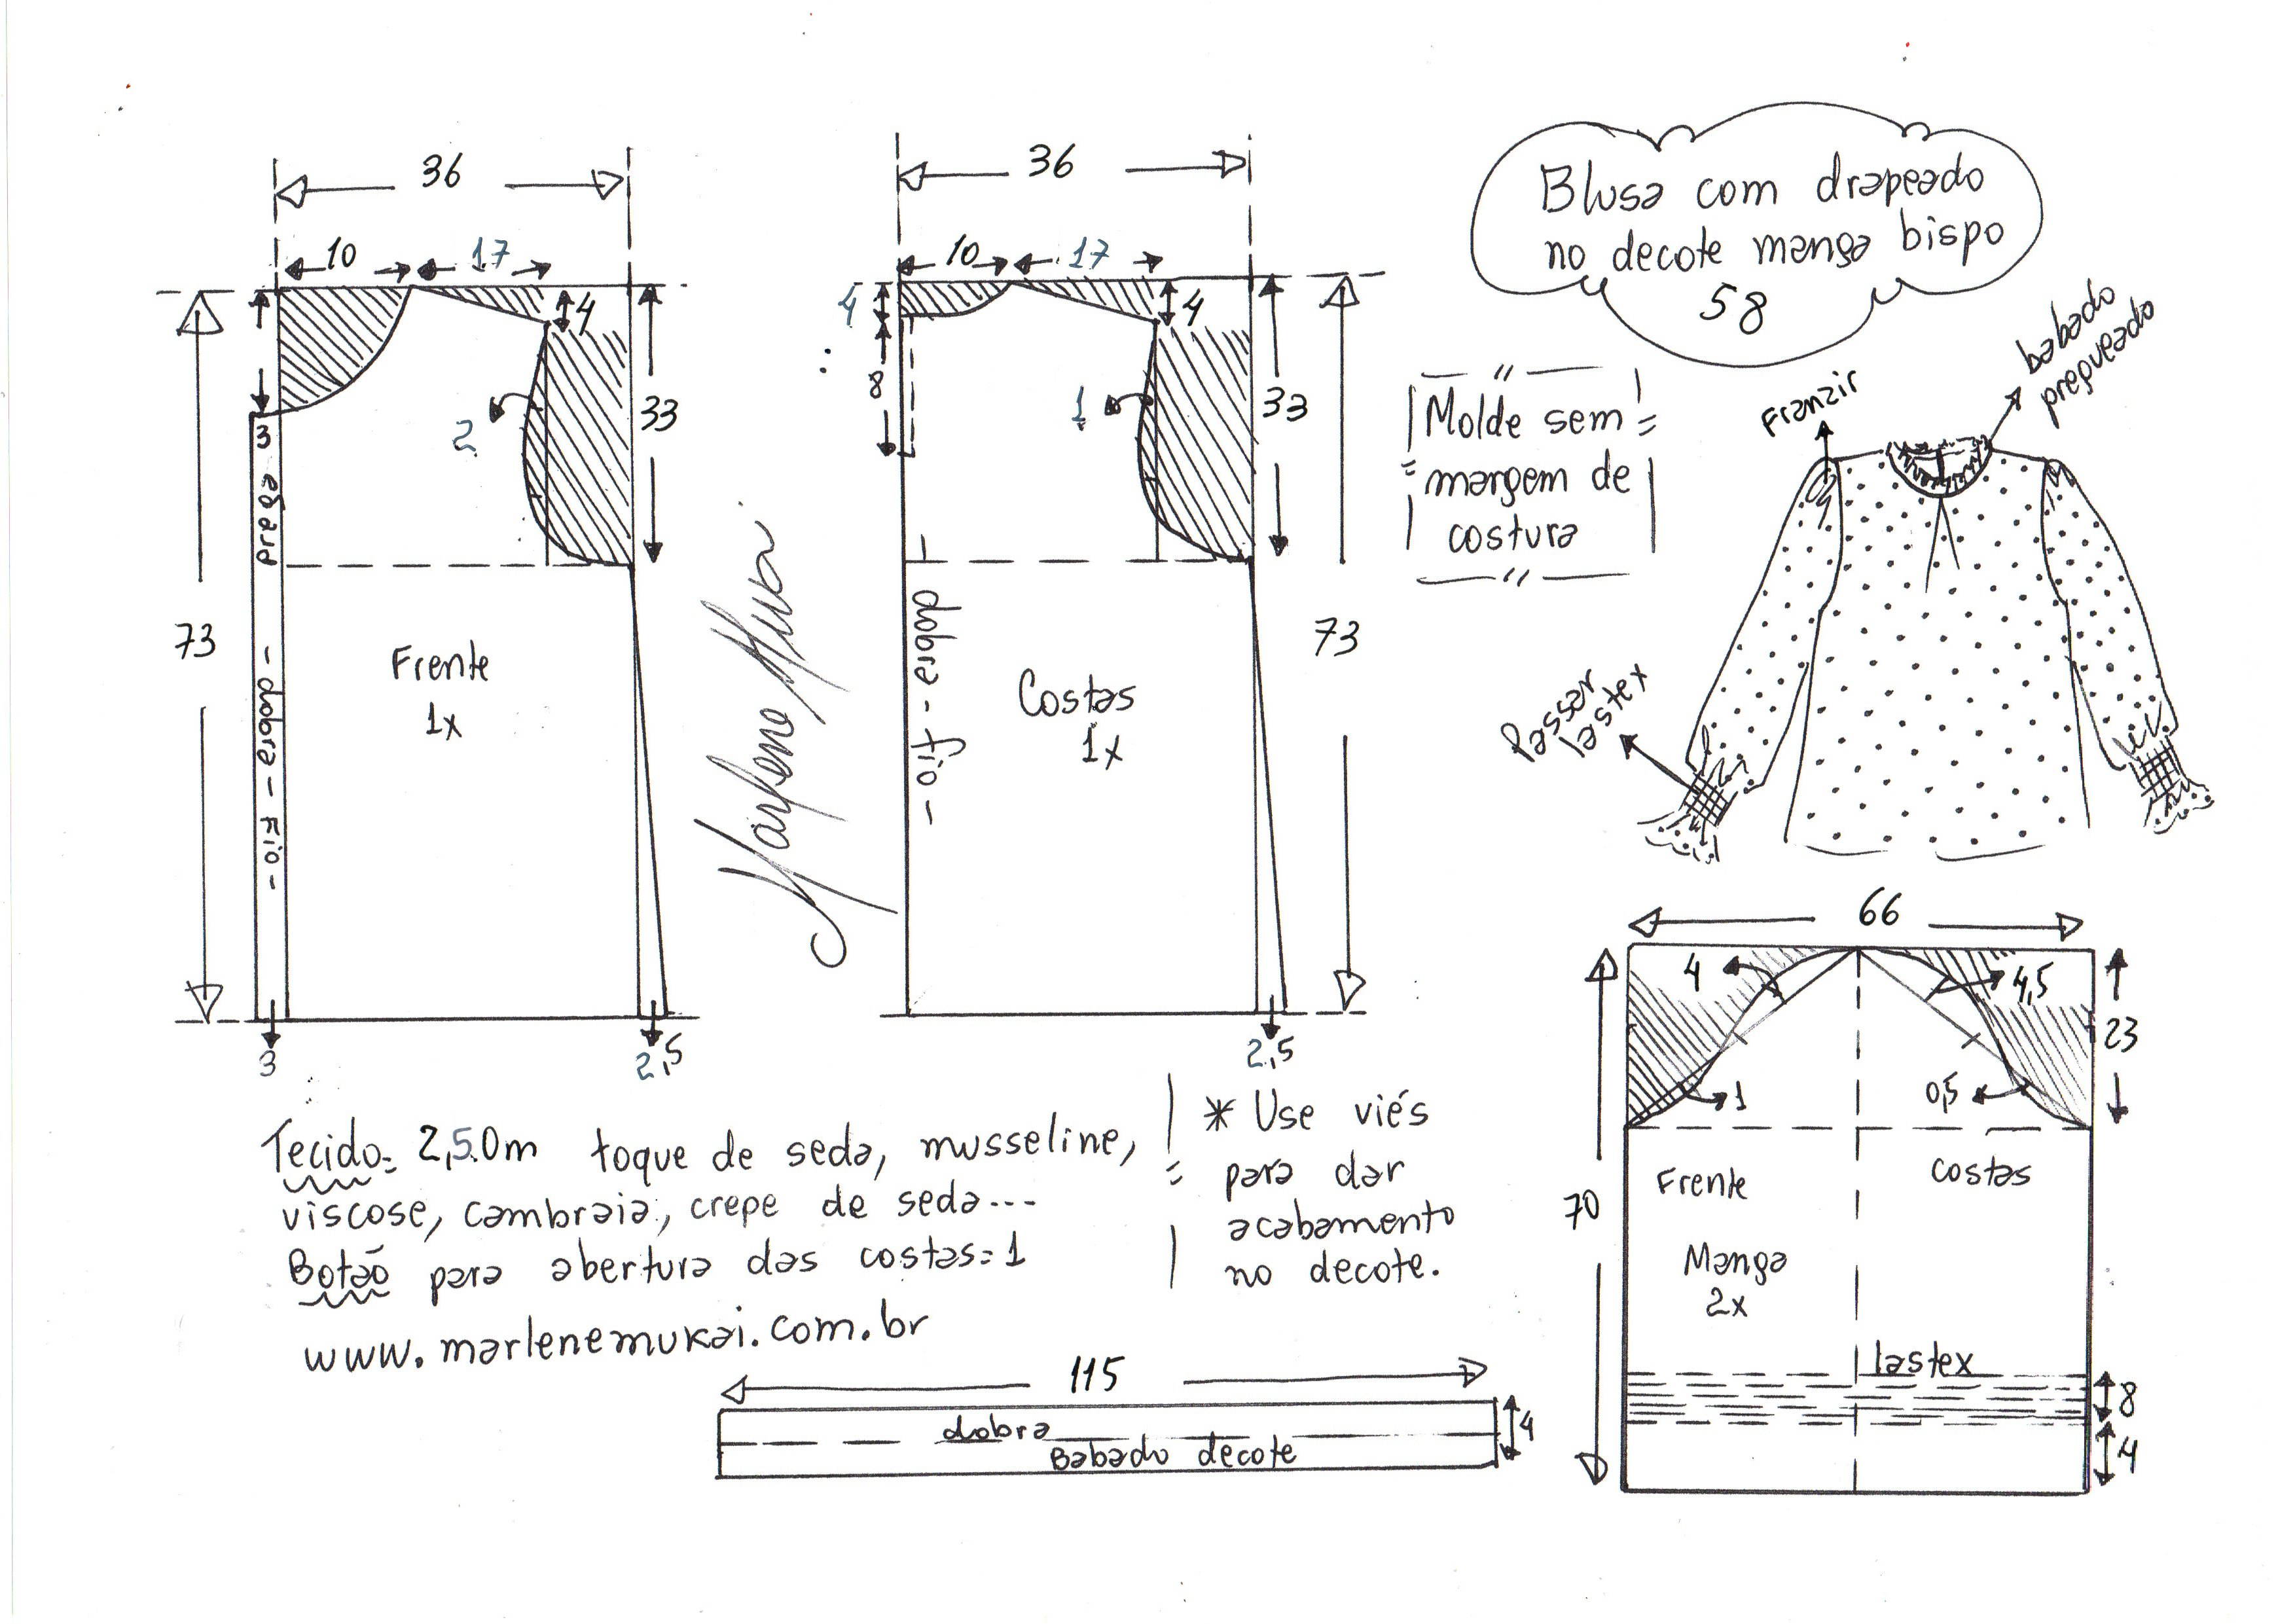 36
10
17
4
33
2
3
prega
- dobra - Fio -
73
Frente
1x
3
2,5
36
10
17
4
8
4
1
33
dobra - fio -
Costas
1x
73
2,5
Blusa com drapeado
no decote manga bispo
58
Molde sem
margem de
costura
Franzir
babado
pregueado
Passar
lastex
66
4
4,5
23
1
0,5
Frente
costas
70
Manga
2x
lastex
8
4
Tecido= 2,50m toque de seda, musseline,
viscose, cambraia, crepe de seda...
Botão para abertura das costas=1
www.marlenemukai.com.br
* Use viés
para dar
acabamento
no decote.
115
dobra
Babado decote
4